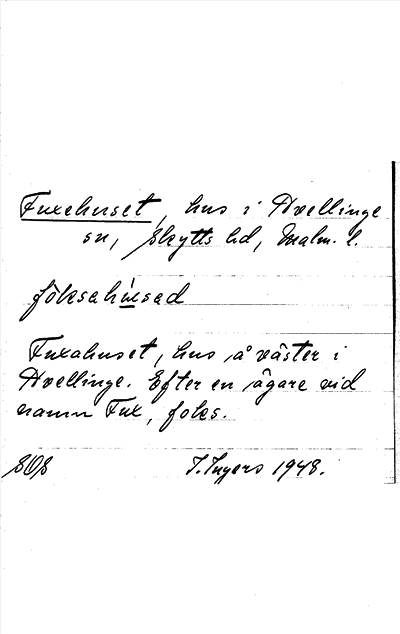 Fuxehuset, hus i Hvellinge
sn, Skytts hd, Malm. l.
foksahused
Fuxahuset, hus å väster i
Hvellinge. Efter en ägare vid
namn Fux, foks.
SOS
I. Ingers 1948.